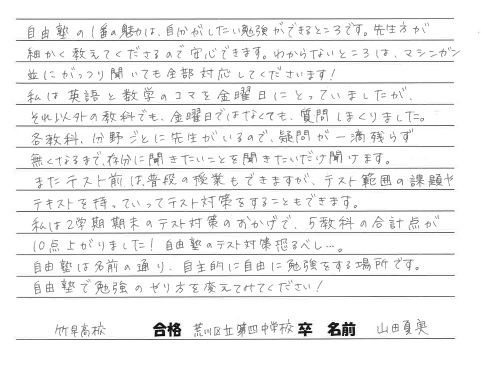 自由塾の1番の魅力は、自分がしたい勉強ができるところです。先生方が
細かく教えてくださるので安心できます。わからないところは、マシンガン
並にがっつり聞いても全部対応してくださいます！
私は英語と数学のコマを金曜日にとっていましたが、
それ以外の教科でも、金曜日ではなくても、質問しまくりました。
各教科、分野ごとに先生がいるので、疑問が一滴残らず
無くなるまで、存分に聞きたいことを聞きたいだけ聞けます。
またテスト前は、普段の授業もできますが、テスト範囲の課題や
テキストを持っていってテスト対策をすることもできます。
私は2学期期末のテスト対策のおかげで、5教科の合計点が
10点上がりました！自由塾のテスト対策恐るべし…。
自由塾は名前の通り、自主的に自由に勉強をする場所です。
自由塾で勉強のやり方を変えてみてください！
竹早高校 合格 荒川区立第四中学校 卒 名前 山田夏奥